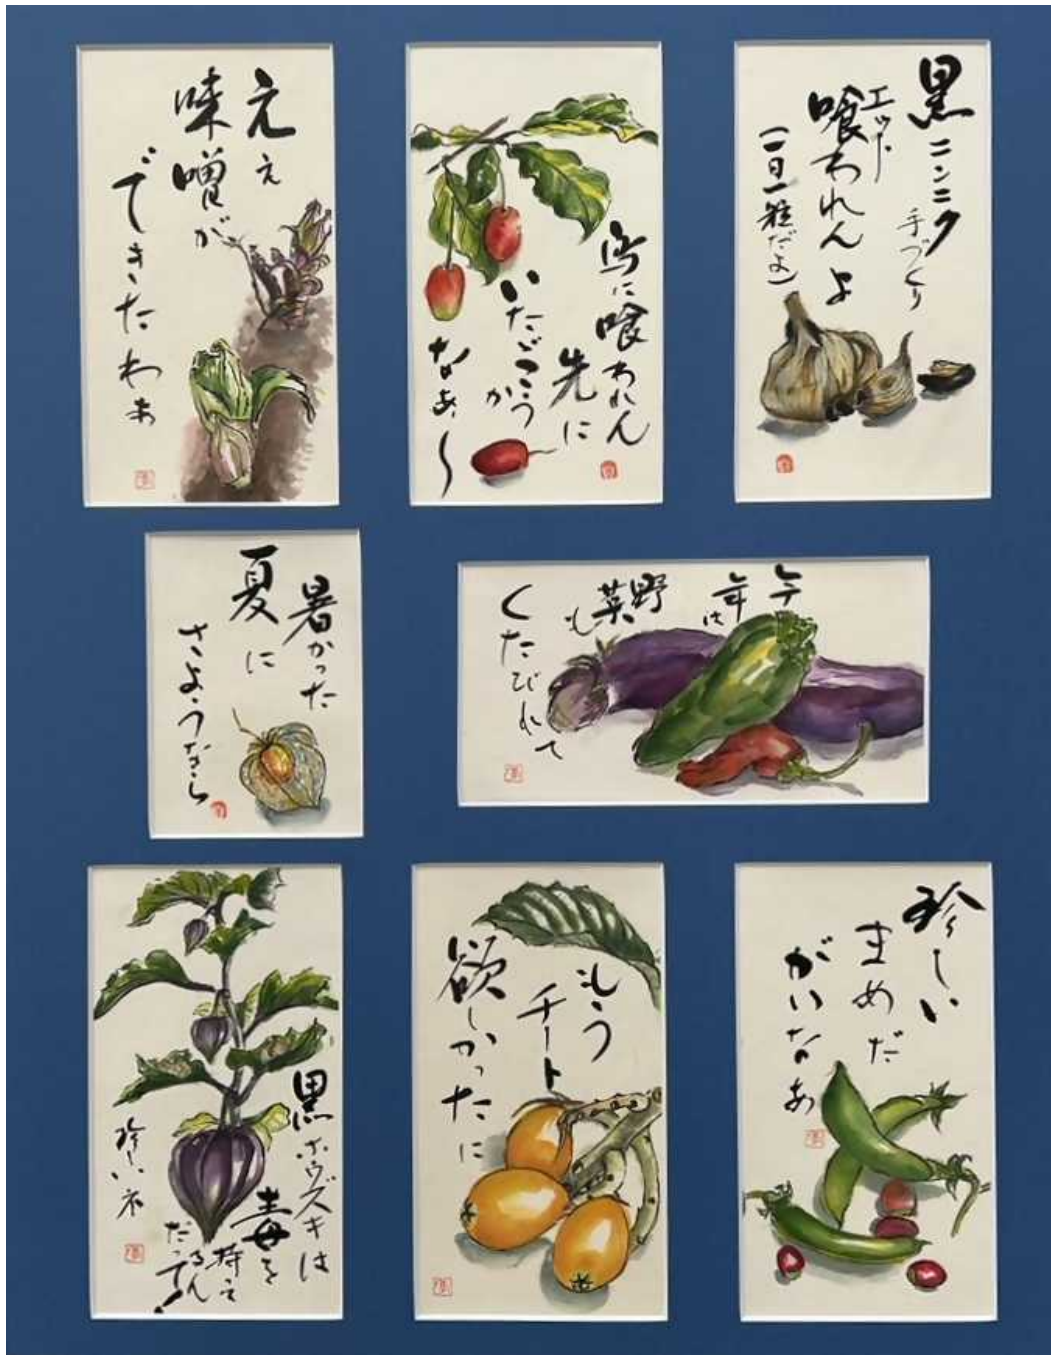 ええ
味噌が
できたわぁ
鳥に喰われん
先に
いたゞこうか
なあ〜
黒ニンニク
手づくり
エット
喰われんよ
(一日一粒だよ)
暑かった
夏に
さようなら
今
年は
野
菜も
くたびれて
黒ホウズキは
毒を
持って
るん
だって!
珍しいネ
もう
チート
欲しかったに
珍しい
まめだ
がいなあ